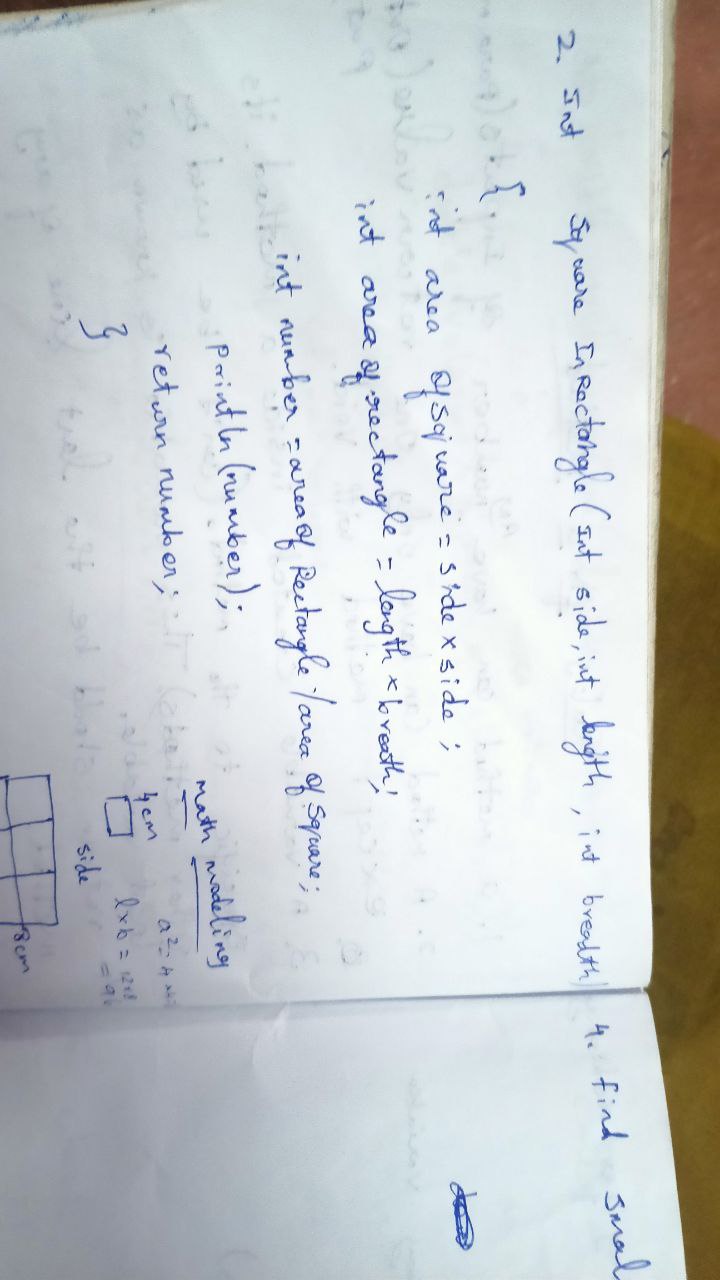 2. Int Square InRectangle (Int side, int length, int breadth)
{
int area of square = side x side;
int area of rectangle = length x breath;
int number = area of Rectangle / area of Square;
println (number);
return number;
}
math modeling
4cm
a² =
l x b =
side
8cm
4. find Smal